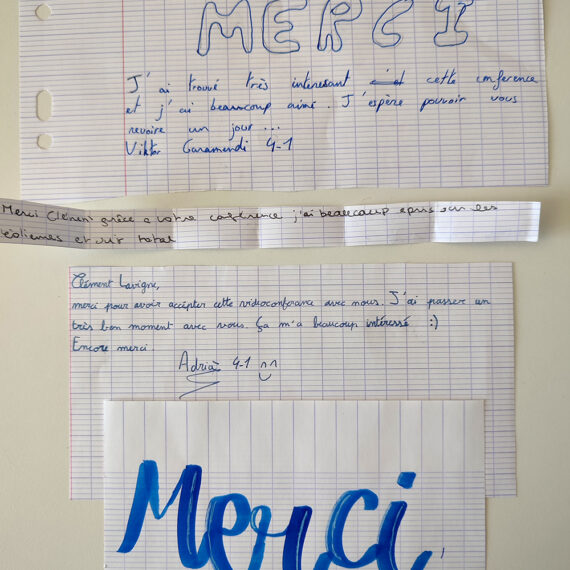 MERCI
J'ai trouvé très interesant c'et cette conference
et j'ai beaucoup aimé. J'espère pouvoir vous
revoire un jour ...
Viktor Garamendi 4-1
Merci Clément grâce a votre conférence j'ai beaucoup apris sur les
éoliennes et sur total
Clément Lavigne,
merci pour avoir accepter cette videoconférance avec nous. J'ai passer un
très bon moment avec vous. Ça m'a beaucoup intéressé :)
Encore merci
Adrià 4-1
Merci,